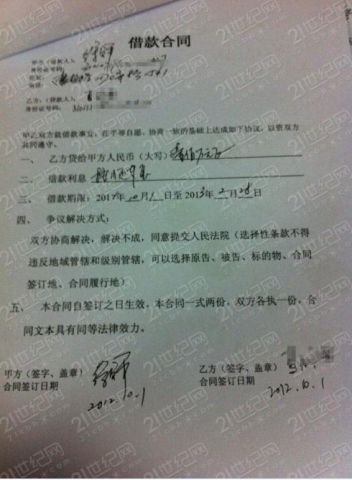 借款合同
甲方（借款人）：
身份证号码：
乙方：（贷款人）
身份证号码：
甲乙双方就借款事宜，在平等自愿、协商一致的基础上达成如下协议，以资双方
共同遵守。
一、 乙方贷给甲方人民币（大写）
二、 借款利息
三、 借款期限：201 年 月 日至2013年2月28日
四、 争议解决方式：
双方协商解决，解决不成，同意提交人民法院（选择性条款不得
违反地域管辖和级别管辖，可以选择原告、被告、标的物、合同
签订地、合同履行地）
五、 本合同自签订之日生效，本合同一式两份，双方各执一份，合
同文本具有同等法律效力。
甲方（签字、盖章）
合同签订日期
2012.10.1
乙方（签字、盖章）
合同签订日期
2012.10.1
21世纪网